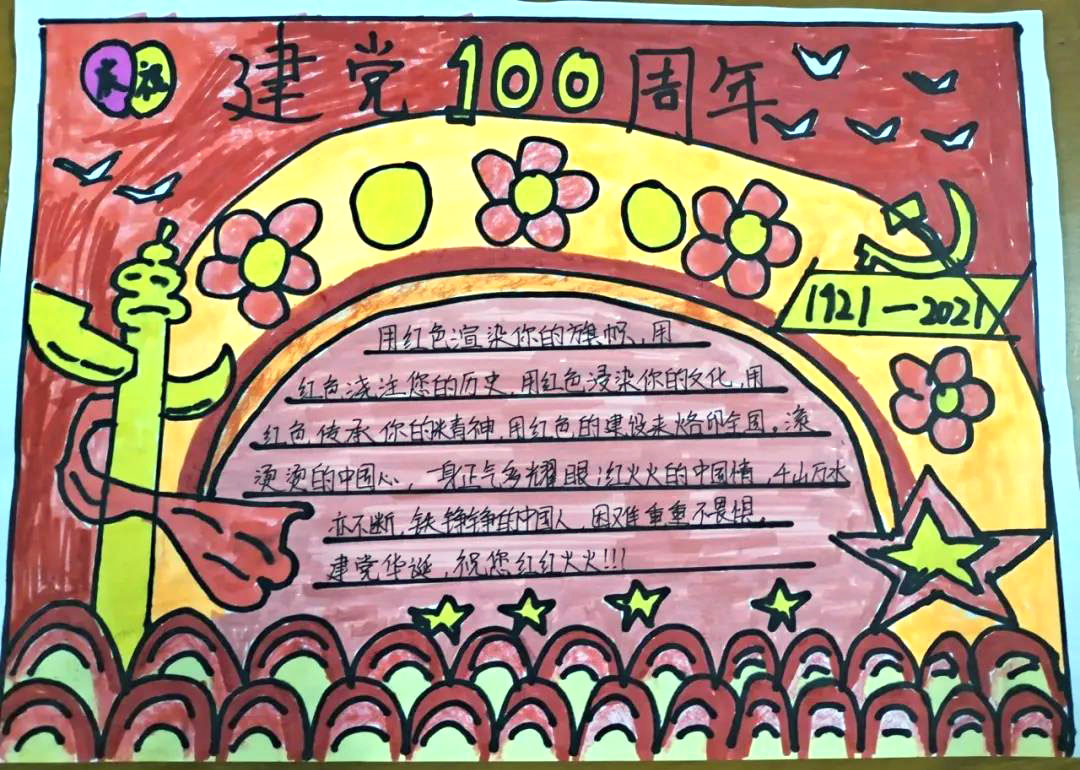 庆祝
建党100周年
1921—2021
用红色渲染你的旗帜,用
红色浇注您的历史,用红色浸染你的文化,用
红色传承你的精神,用红色的建设来烙印全国。滚
烫烫的中国心,一身正气多耀眼,红火火的中国情,千山万水
亦不断,铁铮铮的中国人,困难重重不畏惧。
建党华诞,祝您红红火火!!!